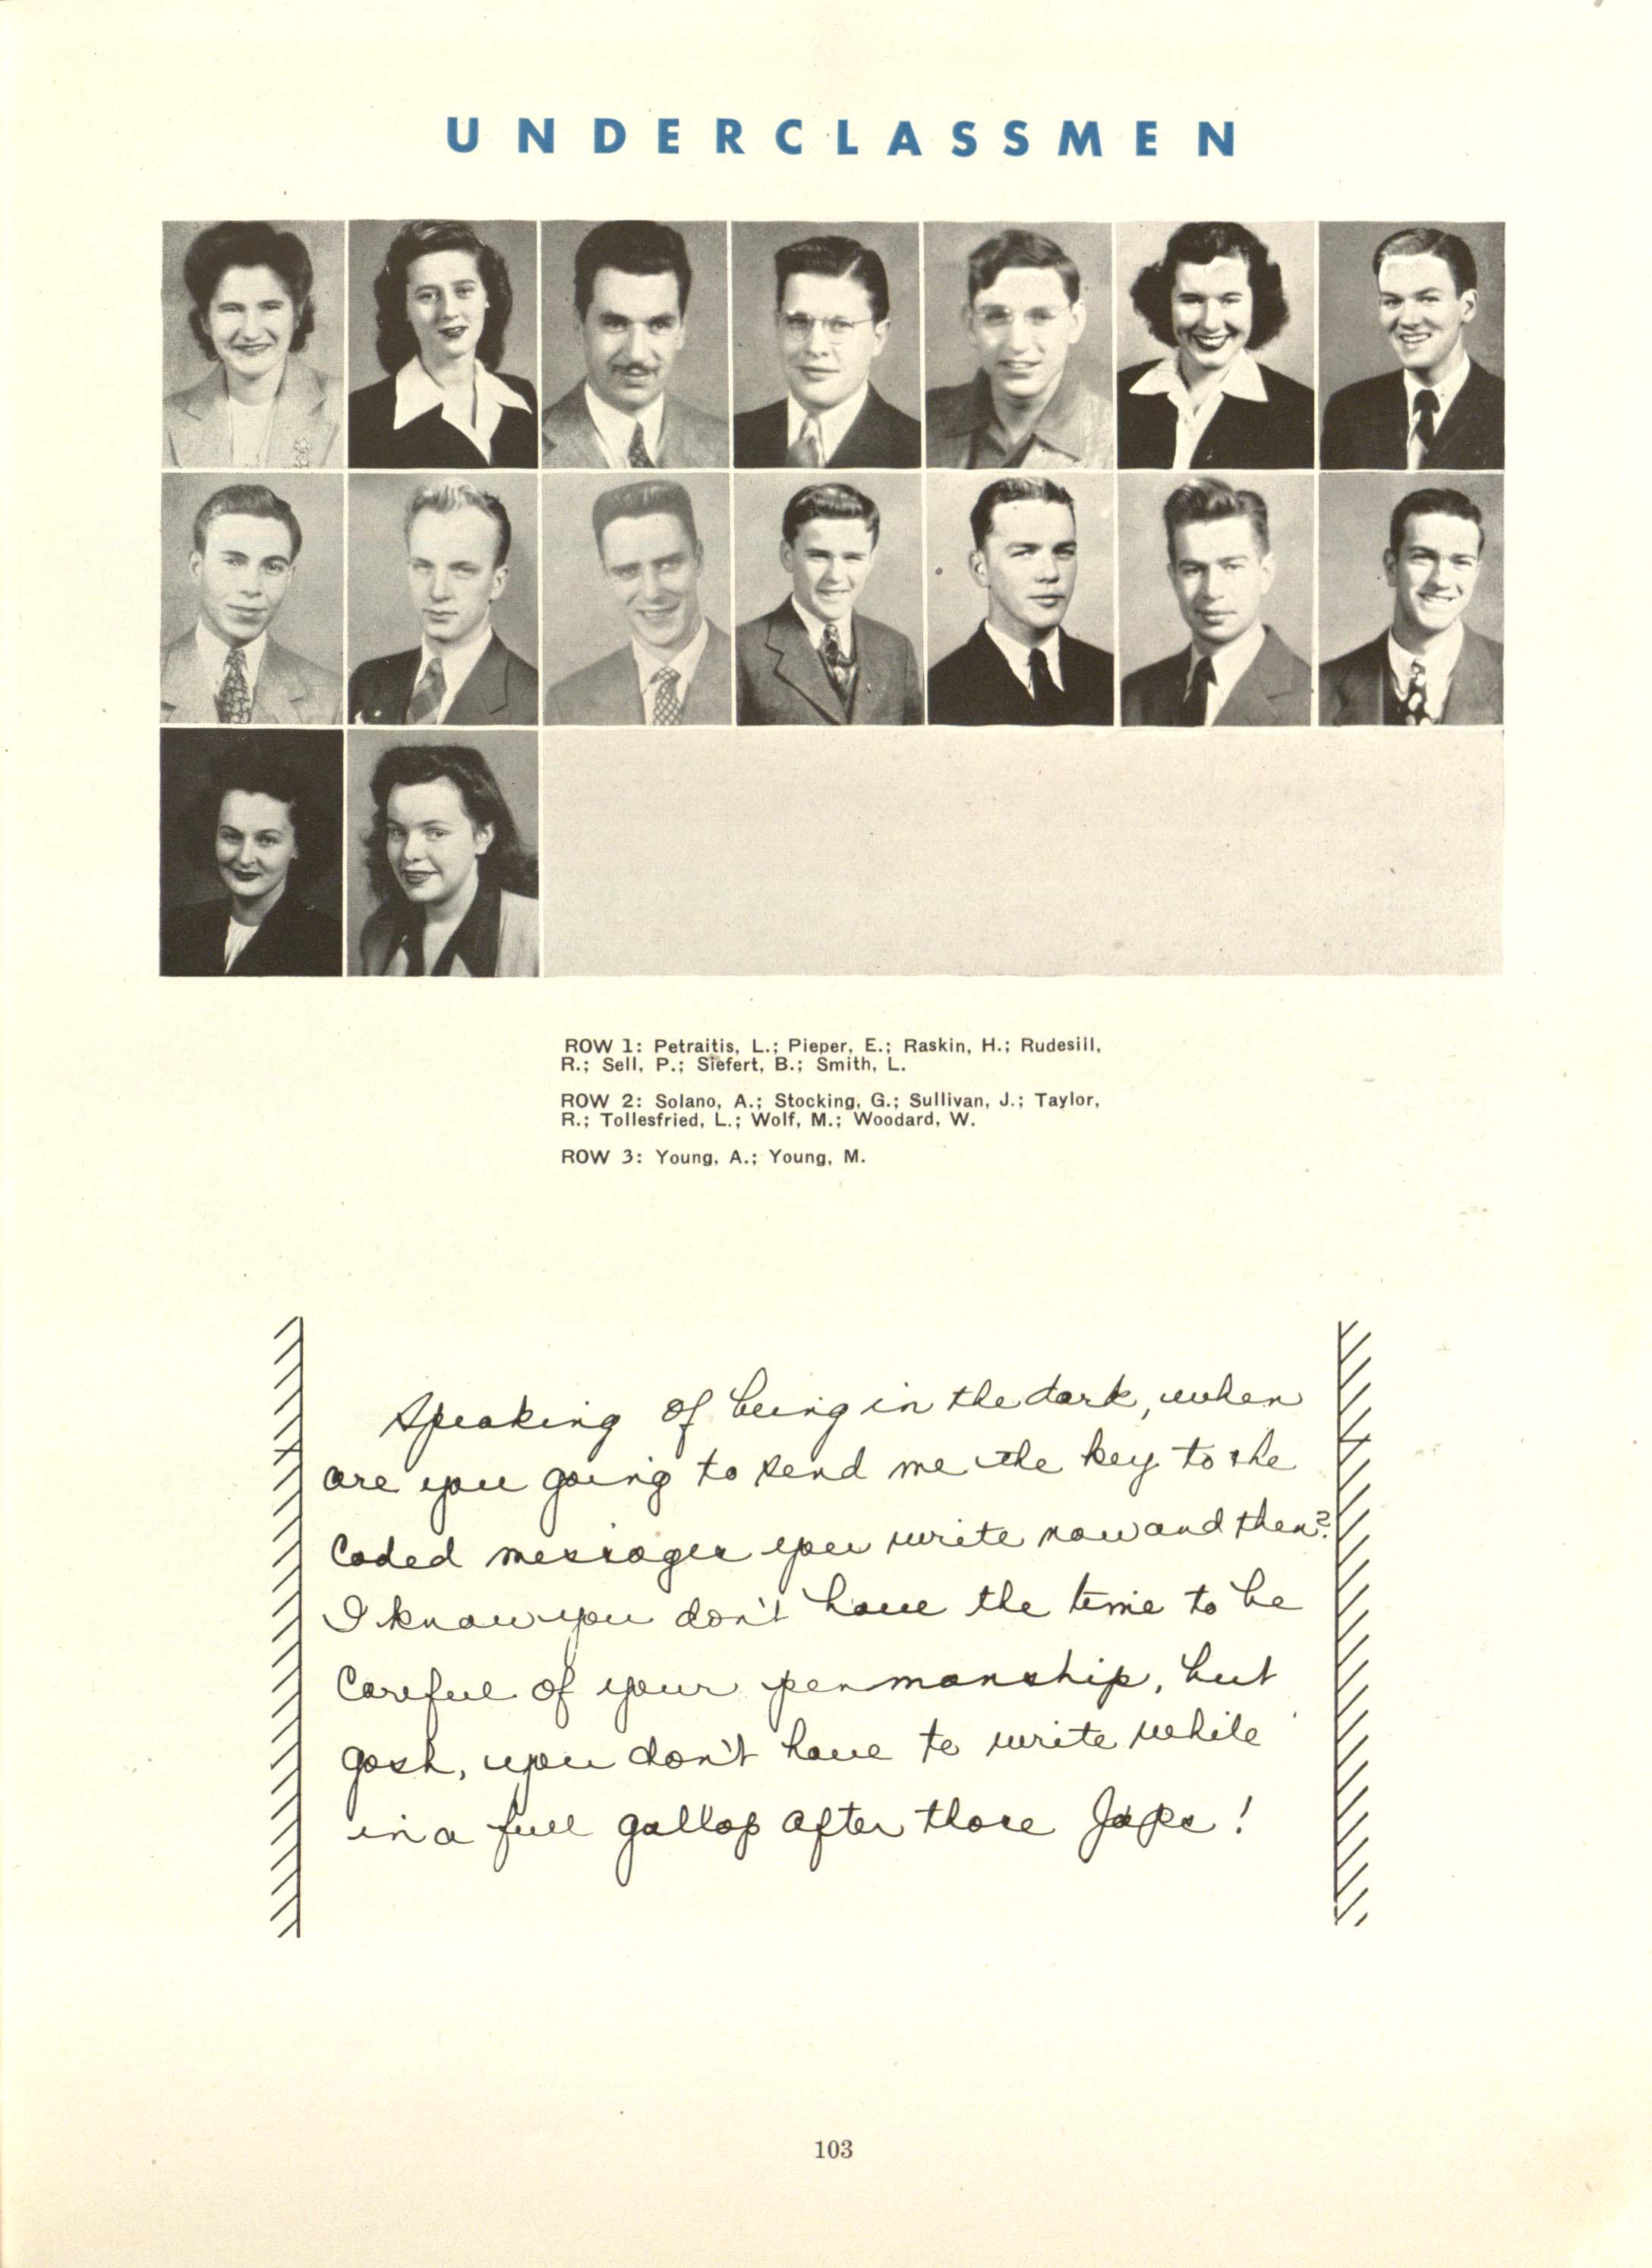 UNDERCLASSMEN
ROW 1: Petraitis, L.; Pieper, E.; Raskin, H.; Rudesill,
R.; Sell, P.; Siefert, B.; Smith, L.
ROW 2: Solano, A.; Stocking, G.; Sullivan, J.; Taylor,
R.; Tollesfried, L.; Wolf, M.; Woodard, W.
ROW 3: Young, A.; Young, M.
Speaking of being in the dark, when
are you going to send me the key to the
Coded messages you write now and then?
I know you don't have the time to be
Careful of your penmanship, but
gosh, you don't have to write while
in a full gallop after those Japs!
103